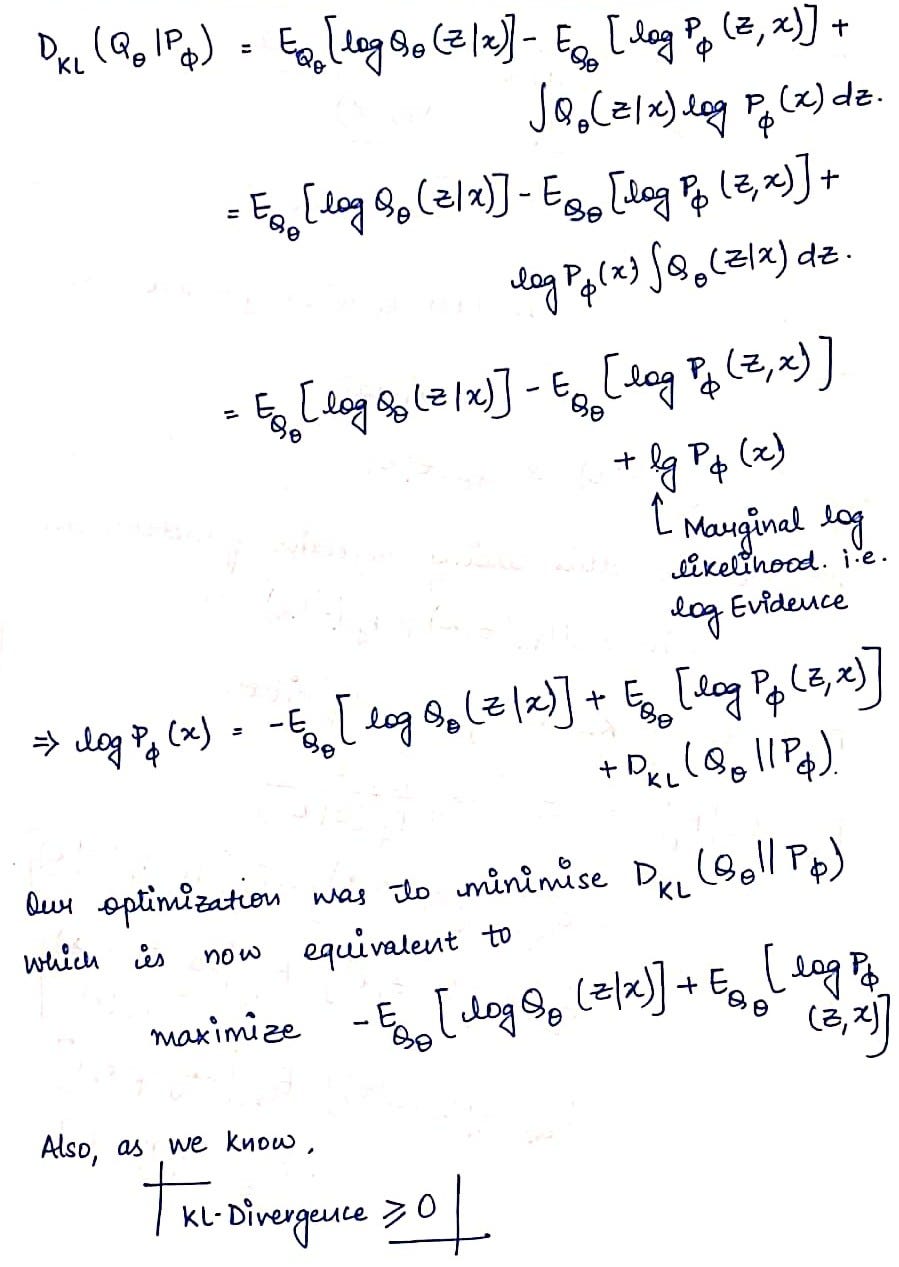 D_KL (Q_θ | P_ϕ) = E_Q_θ [log Q_θ (z|x)] - E_Q_θ [log P_ϕ (z, x)] +
∫ Q_θ (z|x) log P_ϕ (x) dz.
= E_Q_θ [log Q_θ (z|x)] - E_Q_θ [log P_ϕ (z, x)] +
log P_ϕ (x) ∫ Q_θ (z|x) dz.
= E_Q_θ [log Q_θ (z|x)] - E_Q_θ [log P_ϕ (z, x)]
+ lg P_ϕ (x)
↑ Marginal log
likelihood. i.e.
log Evidence
⇒ log P_ϕ (x) = -E_Q_θ [log Q_θ (z|x)] + E_Q_θ [log P_ϕ (z, x)]
+ D_KL (Q_θ || P_ϕ).
Our optimization was to minimise D_KL (Q_θ || P_ϕ)
which is now equivalent to
maximize -E_Q_θ [log Q_θ (z|x)] + E_Q_θ [log P_ϕ
(z, x)]
Also, as we know,
KL-Divergence ≥ 0